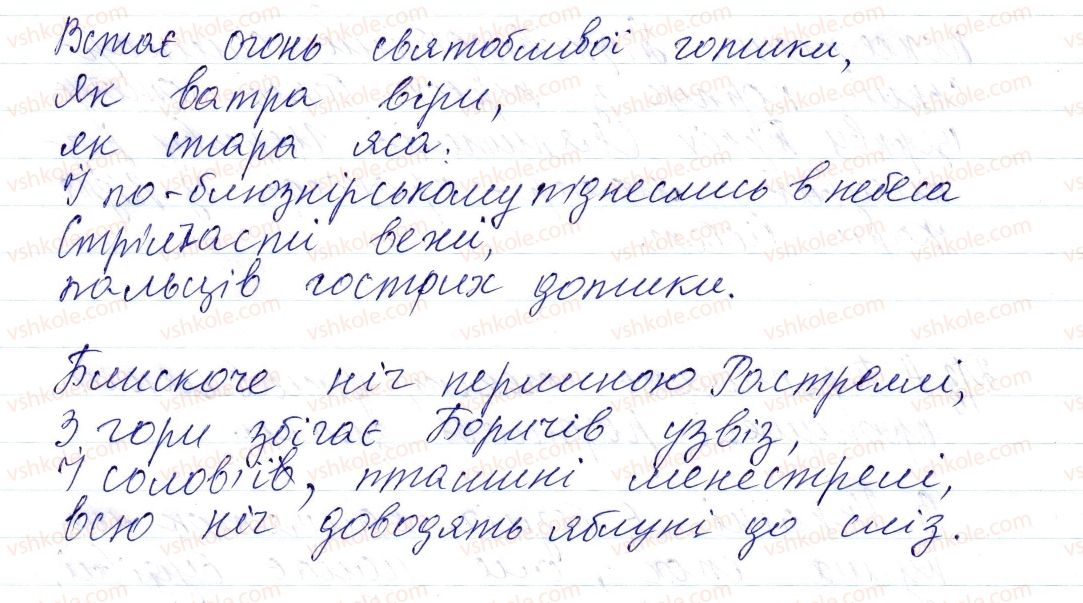 Встає огонь святобливої готики,
Як ватра віри,
як стара яса.
І по-блюзнірському піднеслись в небеса
Стрілчасті вежі,
пальців гострих дотики.
Блискоче ніч перлиною Растреллі,
З гори збігає Боричів узвіз,
І соловіїв, пташині менестрелі,
всю ніч доводять яблуні до сліз.